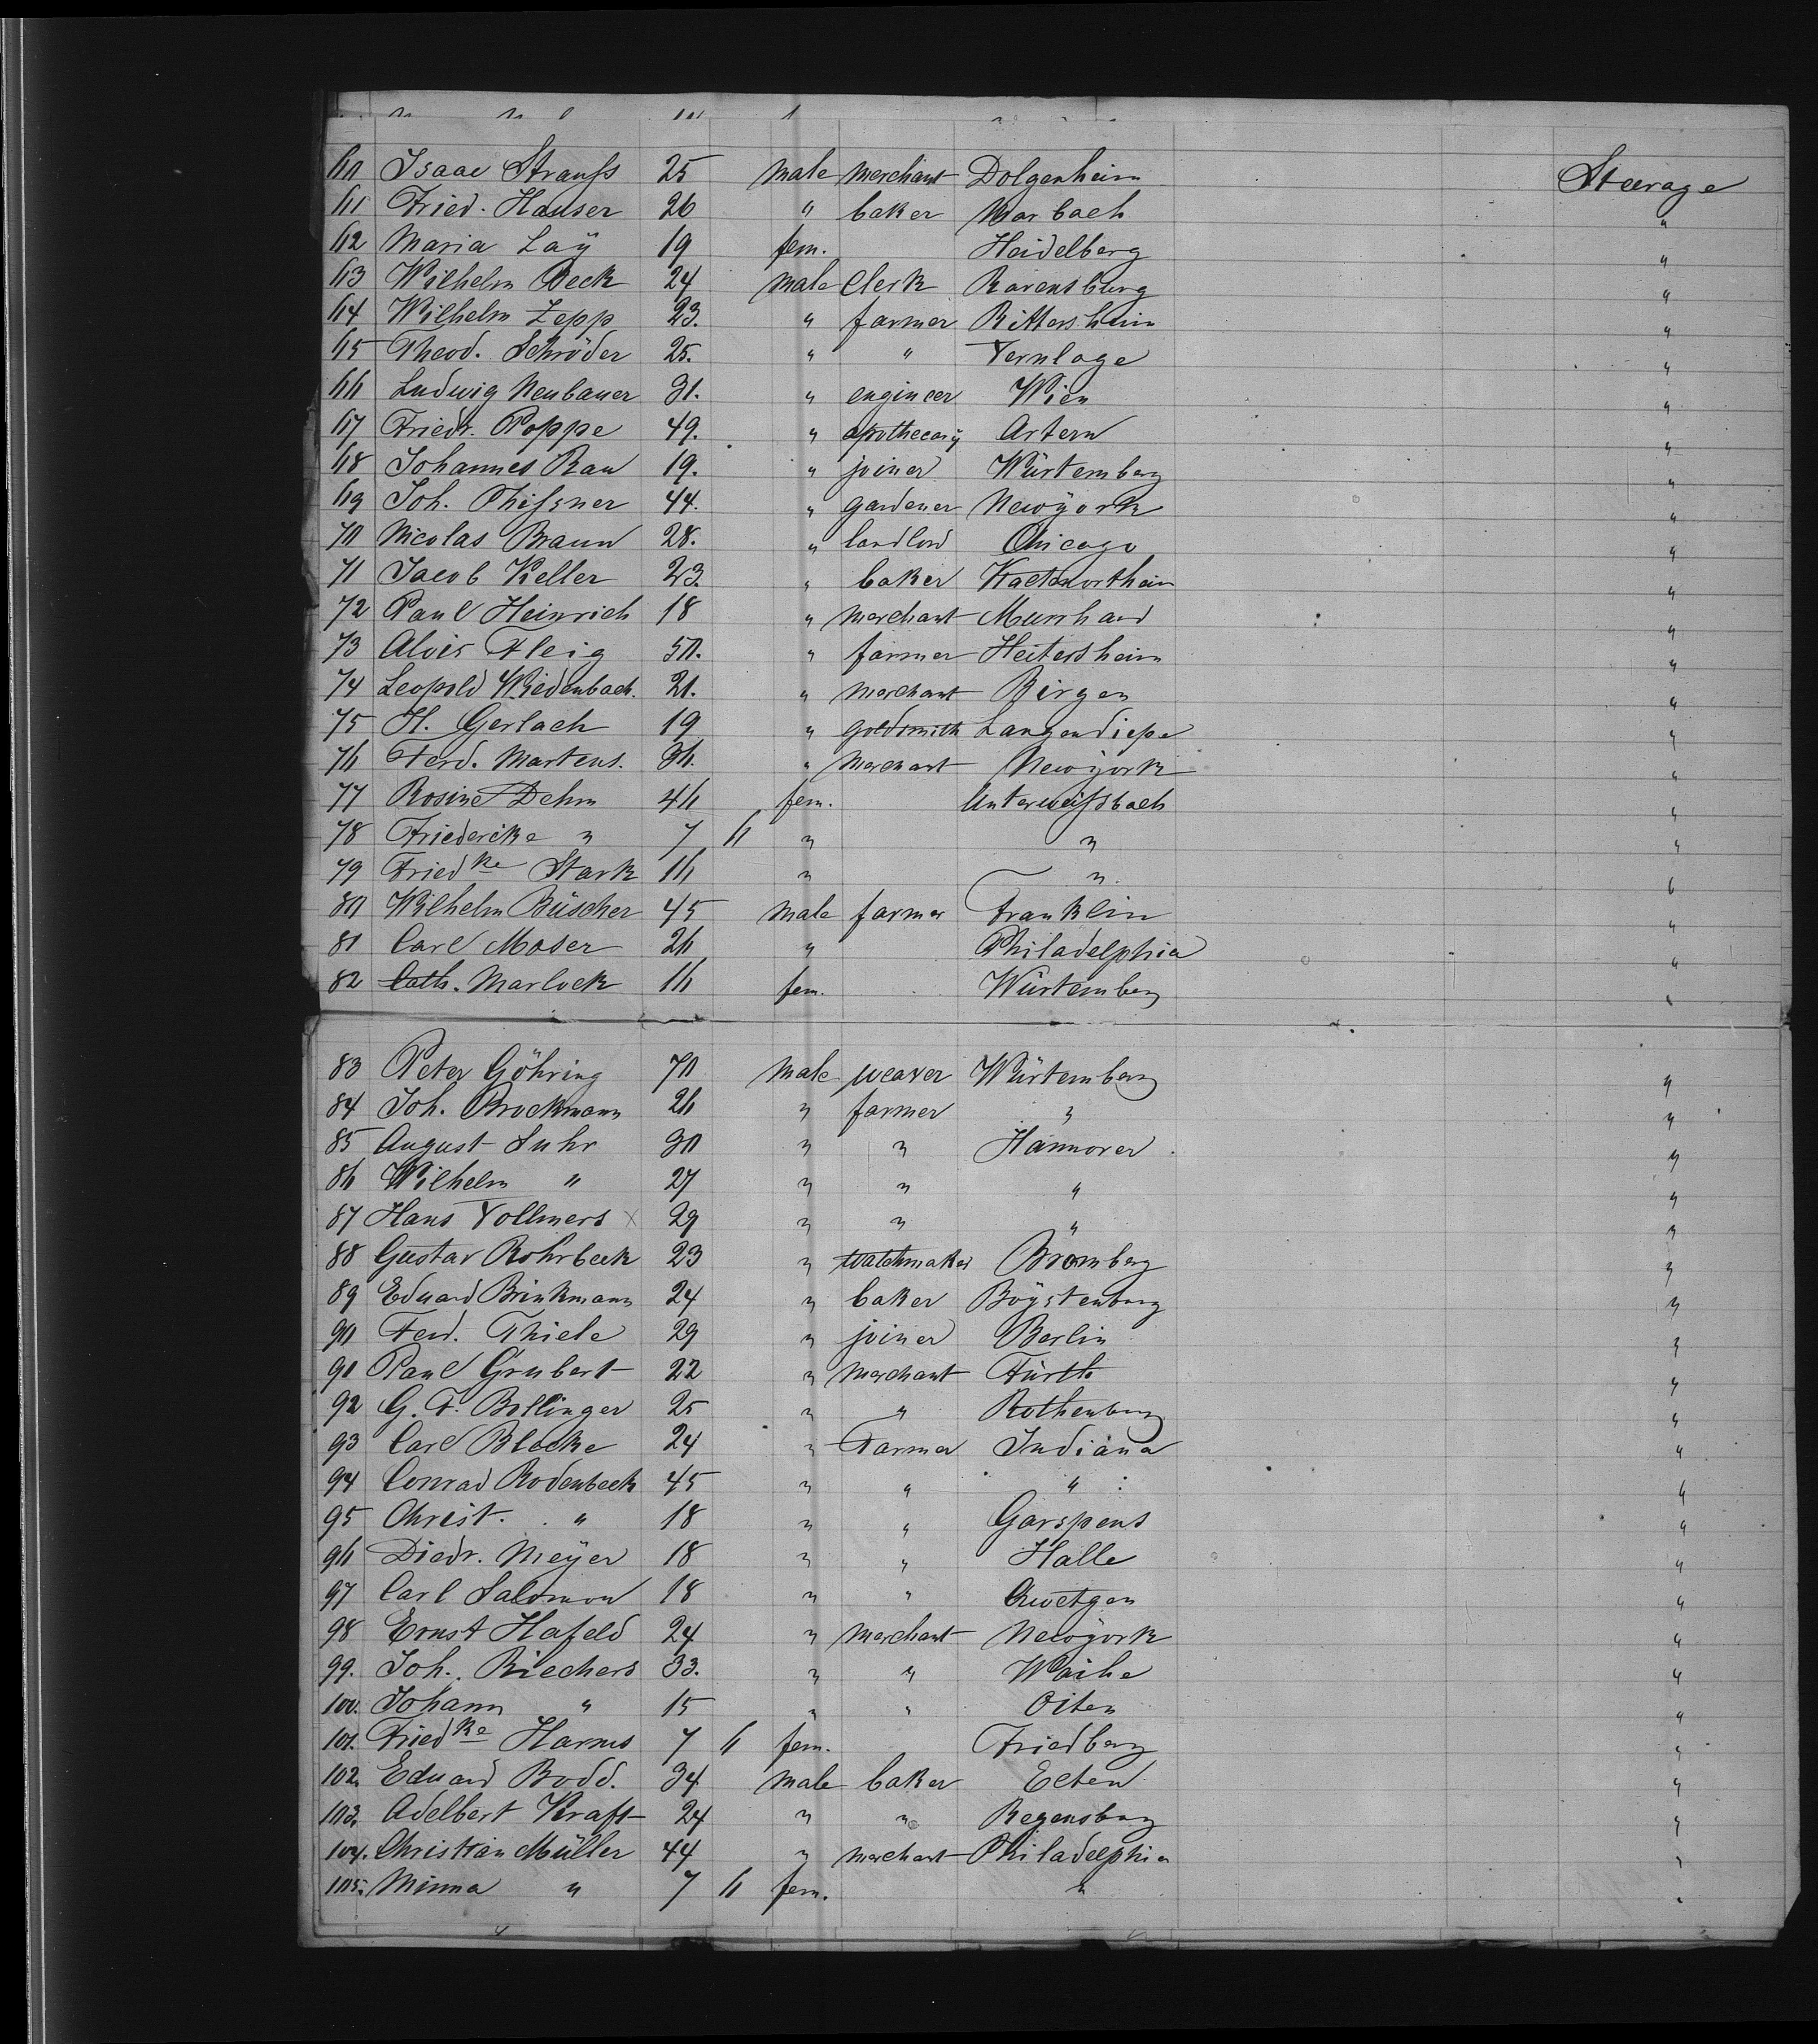 60 Isaac Strauß 25 male merchant Dolgenheim Steerage
61 Fried. Hauser 26 " baker Marbach "
62 Maria Laÿ 19 fem. Heidelberg "
63 Wilhelm Beck 24 male Clerk Ravensburg "
64 Wilhelm Zepp 23. " farmer Rittersheim "
65 Theod. Schröder 25. " " Vernlage "
66 Ludwig Neubauer 31. " engineer Wien "
67 Friedr. Poppe 49. " apothecary Artern "
68 Johannes Rau 19. " joiner Würtemberg "
69 Joh. Thißner 44. " gardener Newÿork "
70 Nicolas Braun 28. " landlord Chicago "
71 Jacob Keller 23. " baker "
72 Paul Heinrich 18 " merchant Murrhard "
73 Alois Fleig 50. " farmer Heitersheim "
74 Leopold Wiedenbach. 21. " merchant Birgen "
75 H. Gerlach 19 " goldsmith Langendiepe "
76 Ferd. Martens. 36. " merchant Newÿork "
77 Rosine Dehm 46 fem. Unterweißbach "
78 Friedericke " 7 6 " " "
79 Friedke Stark 16 " " "
80 Wilhelm Büscher 45 male farmer Franklin "
81 Carl Moser 26 " Philadelphia "
82 Cath. Marlock 16 fem. Würtemberg "
83 Peter Göhring 70 male weaver Würtemberg "
84 Joh. Brockmann 26 " farmer " "
85 August Suhr 30 " " Hannover "
86 Wilhelm " 27 " " " "
87 Hans Vollmers x 29 " " " "
88 Gustav Rohrbeck 23 " watchmaker Bromberg "
89 Eduard Brinkmann 24 " baker Boÿstenburg "
90 Ferd. Thiele 29 " joiner Berlin "
91 Paul Grubert 22 " merchant Fürth "
92 G. F. Bollinger 25 " " Rothenburg "
93 Carl Blocke 24 " Farmer Indiana "
94 Conrad Rodenbeck 45 " " " "
95 Christ. " 18 " " Garspens "
96 Diedr. Meÿer 18 " " Halle "
97 Carl Salomon 18 " " "
98 Ernst Hafeld 24 " merchant Newÿork "
99. Joh. Riechers 33. " " Waihe "
100. Johann " 15 " " Oiten "
101. Friedke Harms 7 6 fem. Friedberg "
102. Eduard Bodd. 34 male baker Elten "
103. Adelbert Kraft 24 " " Regensburg "
104. Christian Müller 44 " merchant Philadelphia "
105. Minna " 7 6 fem. " "